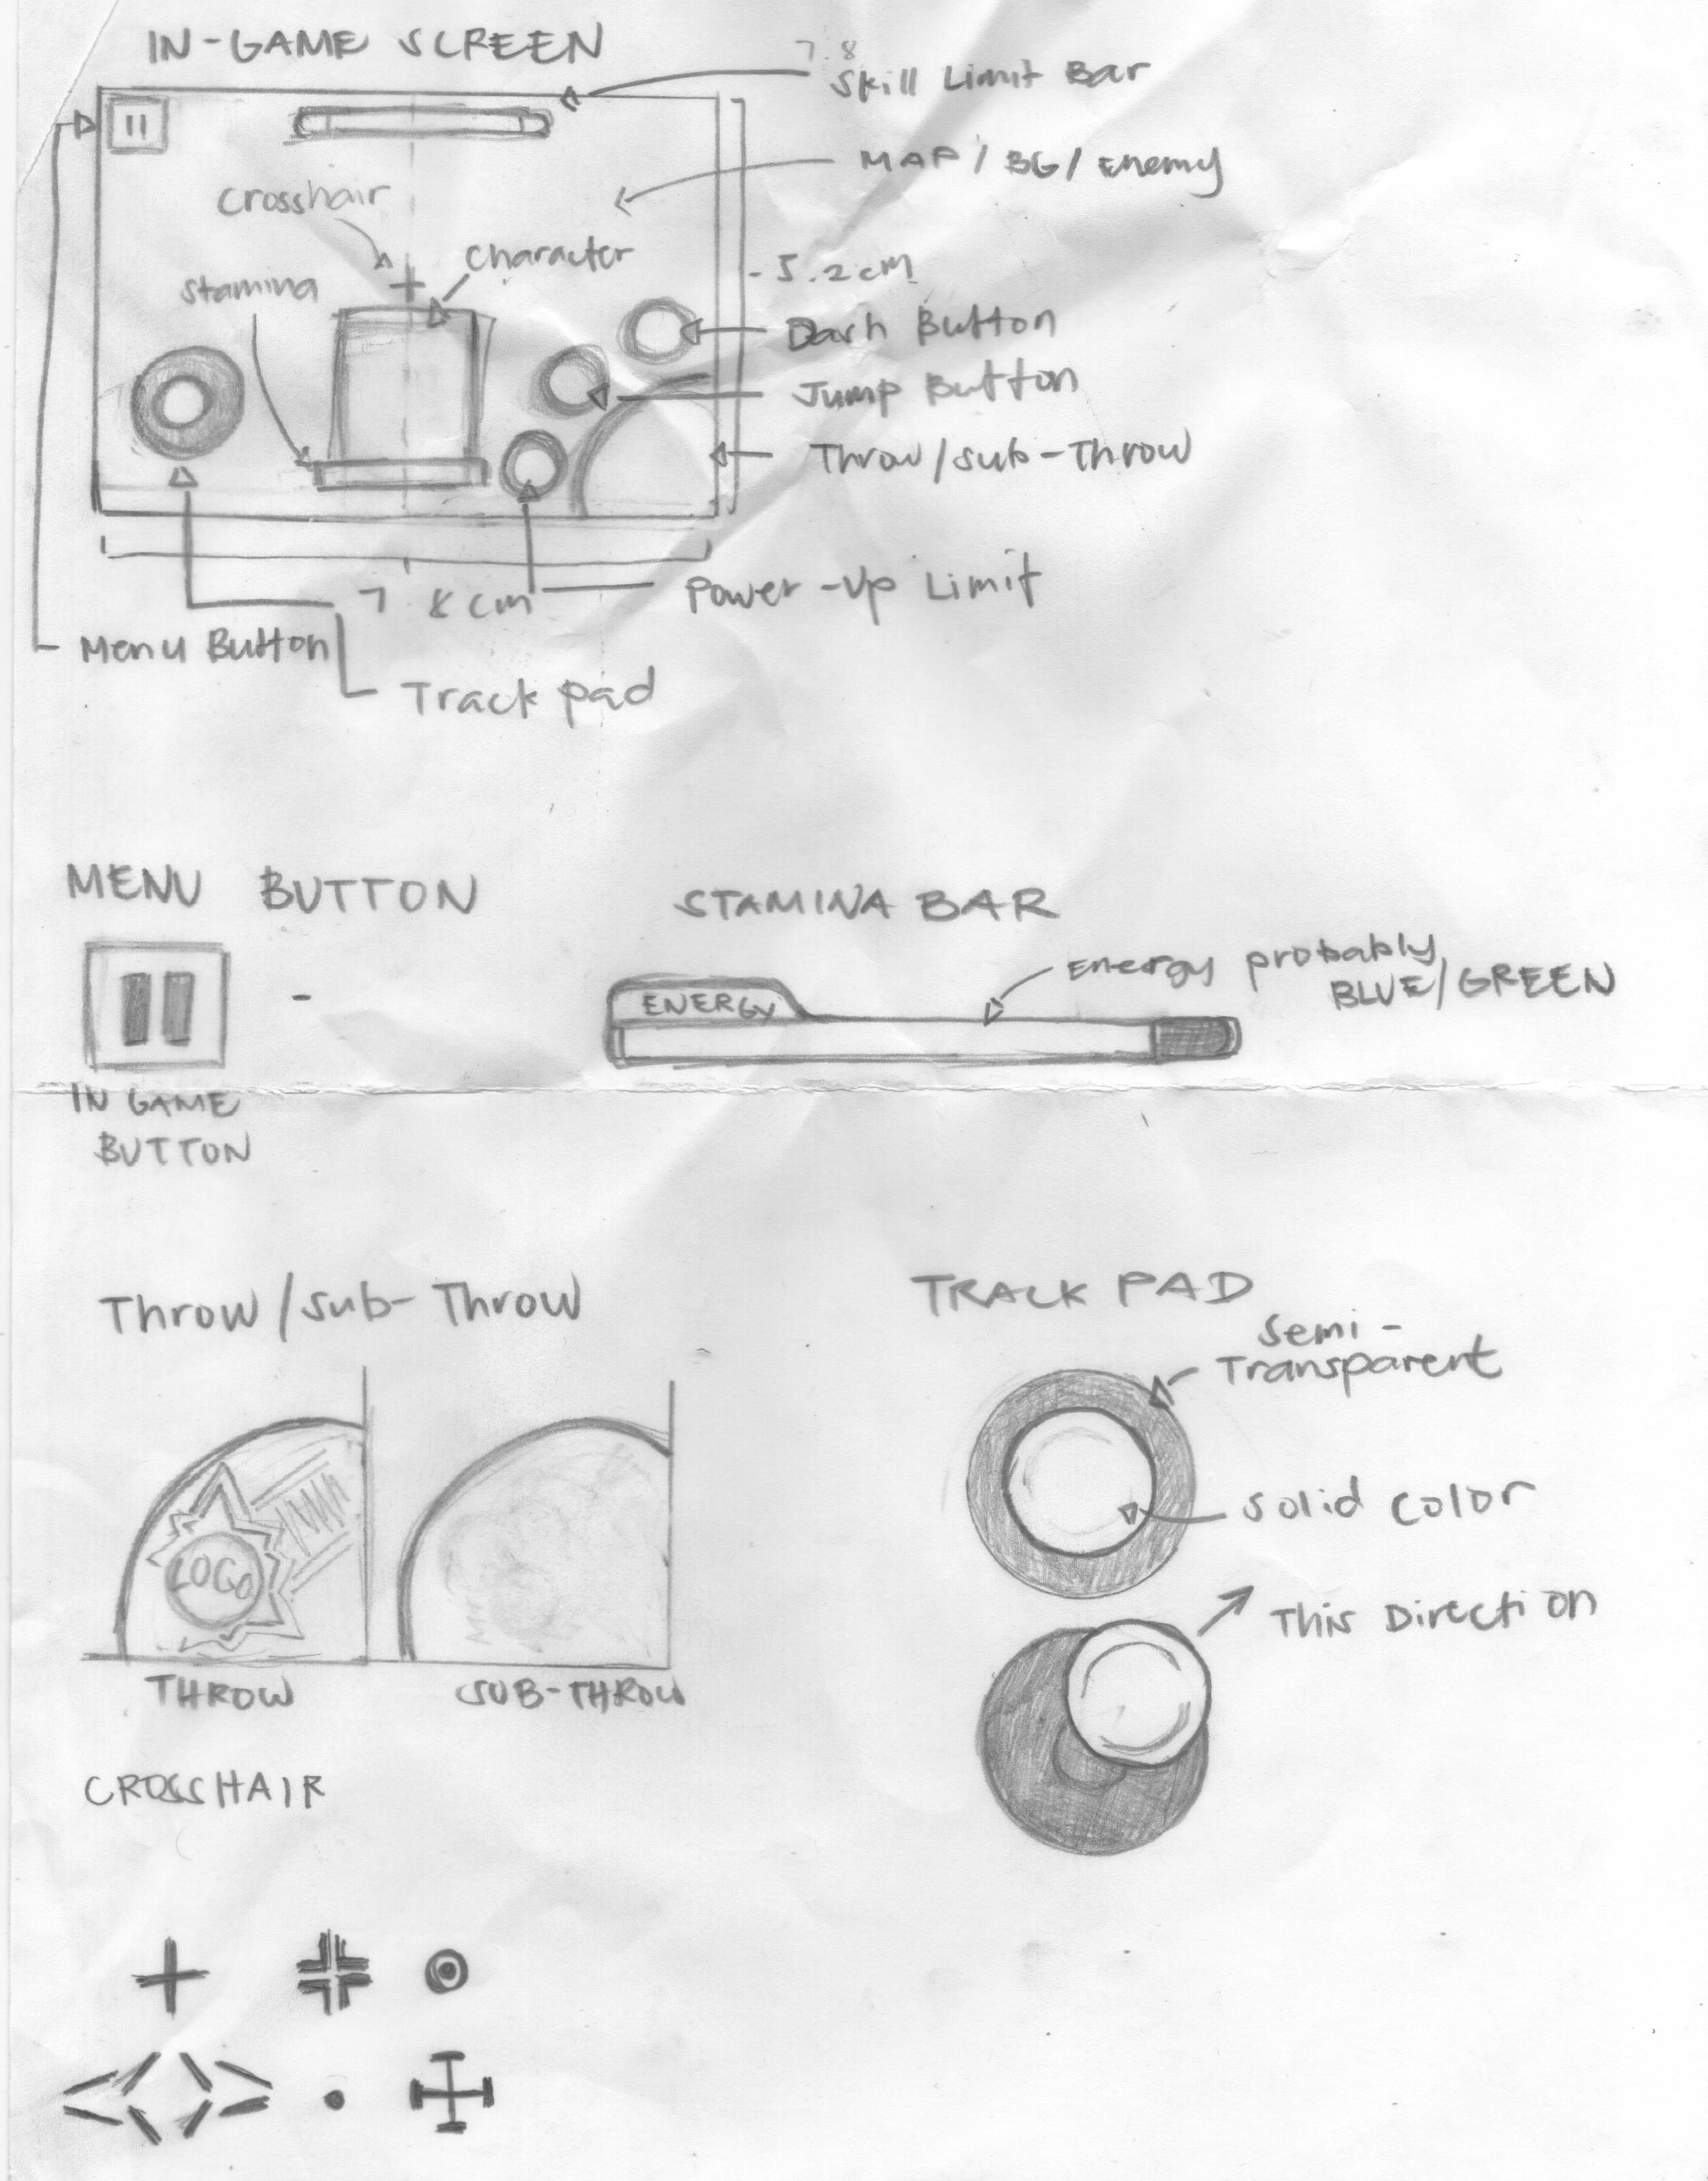 IN-GAME SCREEN
7.8
Skill Limit Bar
MAP / BG / Enemy
Crosshair
Character
Stamina
- 5.2 cm
Dash Button
Jump Button
Throw/sub-Throw
7.8 cm
Power-Up Limit
Menu Button
Track pad
MENU BUTTON
STAMINA BAR
Energy probably
BLUE/GREEN
ENERGY
-
IN GAME
BUTTON
Throw/sub-Throw
TRACK PAD
Semi-
Transparent
LOGO
Solid Color
This Direction
THROW
SUB-THROW
CROSSHAIR